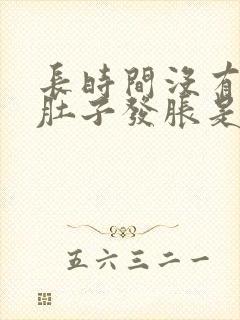 長時間沒有
肚子發脹是
五六三二一